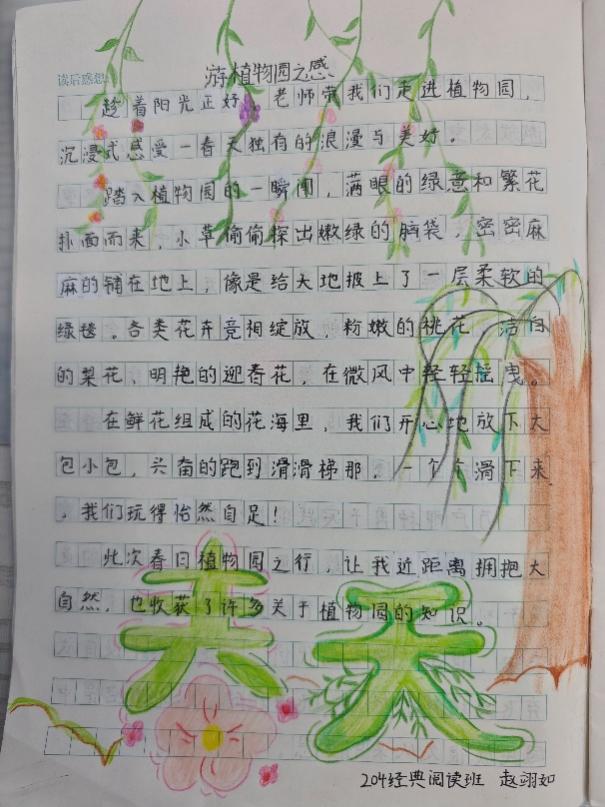 读后感想:
游植物园之感
趁着阳光正好。老师带我们走进植物园,
沉浸式感受一春天独有的浪漫与美好。
踏入植物园的一瞬间,满眼的绿意和繁花
扑面而来,小草偷偷探出嫩绿的脑袋,密密麻
麻的铺在地上,像是给大地披上了一层柔软的
绿毯。各类花卉竞相绽放,粉嫩的桃花 洁白
的梨花、明艳的迎春花,在微风中轻轻摇曳。
在鲜花组成的花海里,我们开心地放下大
包小包,兴奋的跑到滑滑梯那,一个个滑下来
,我们玩得怡然自足!
此次春日植物园之行,让我近距离拥抱大
自然,也收获了许多关于植物园的知识。
春天
204经典阅读班 赵翊如